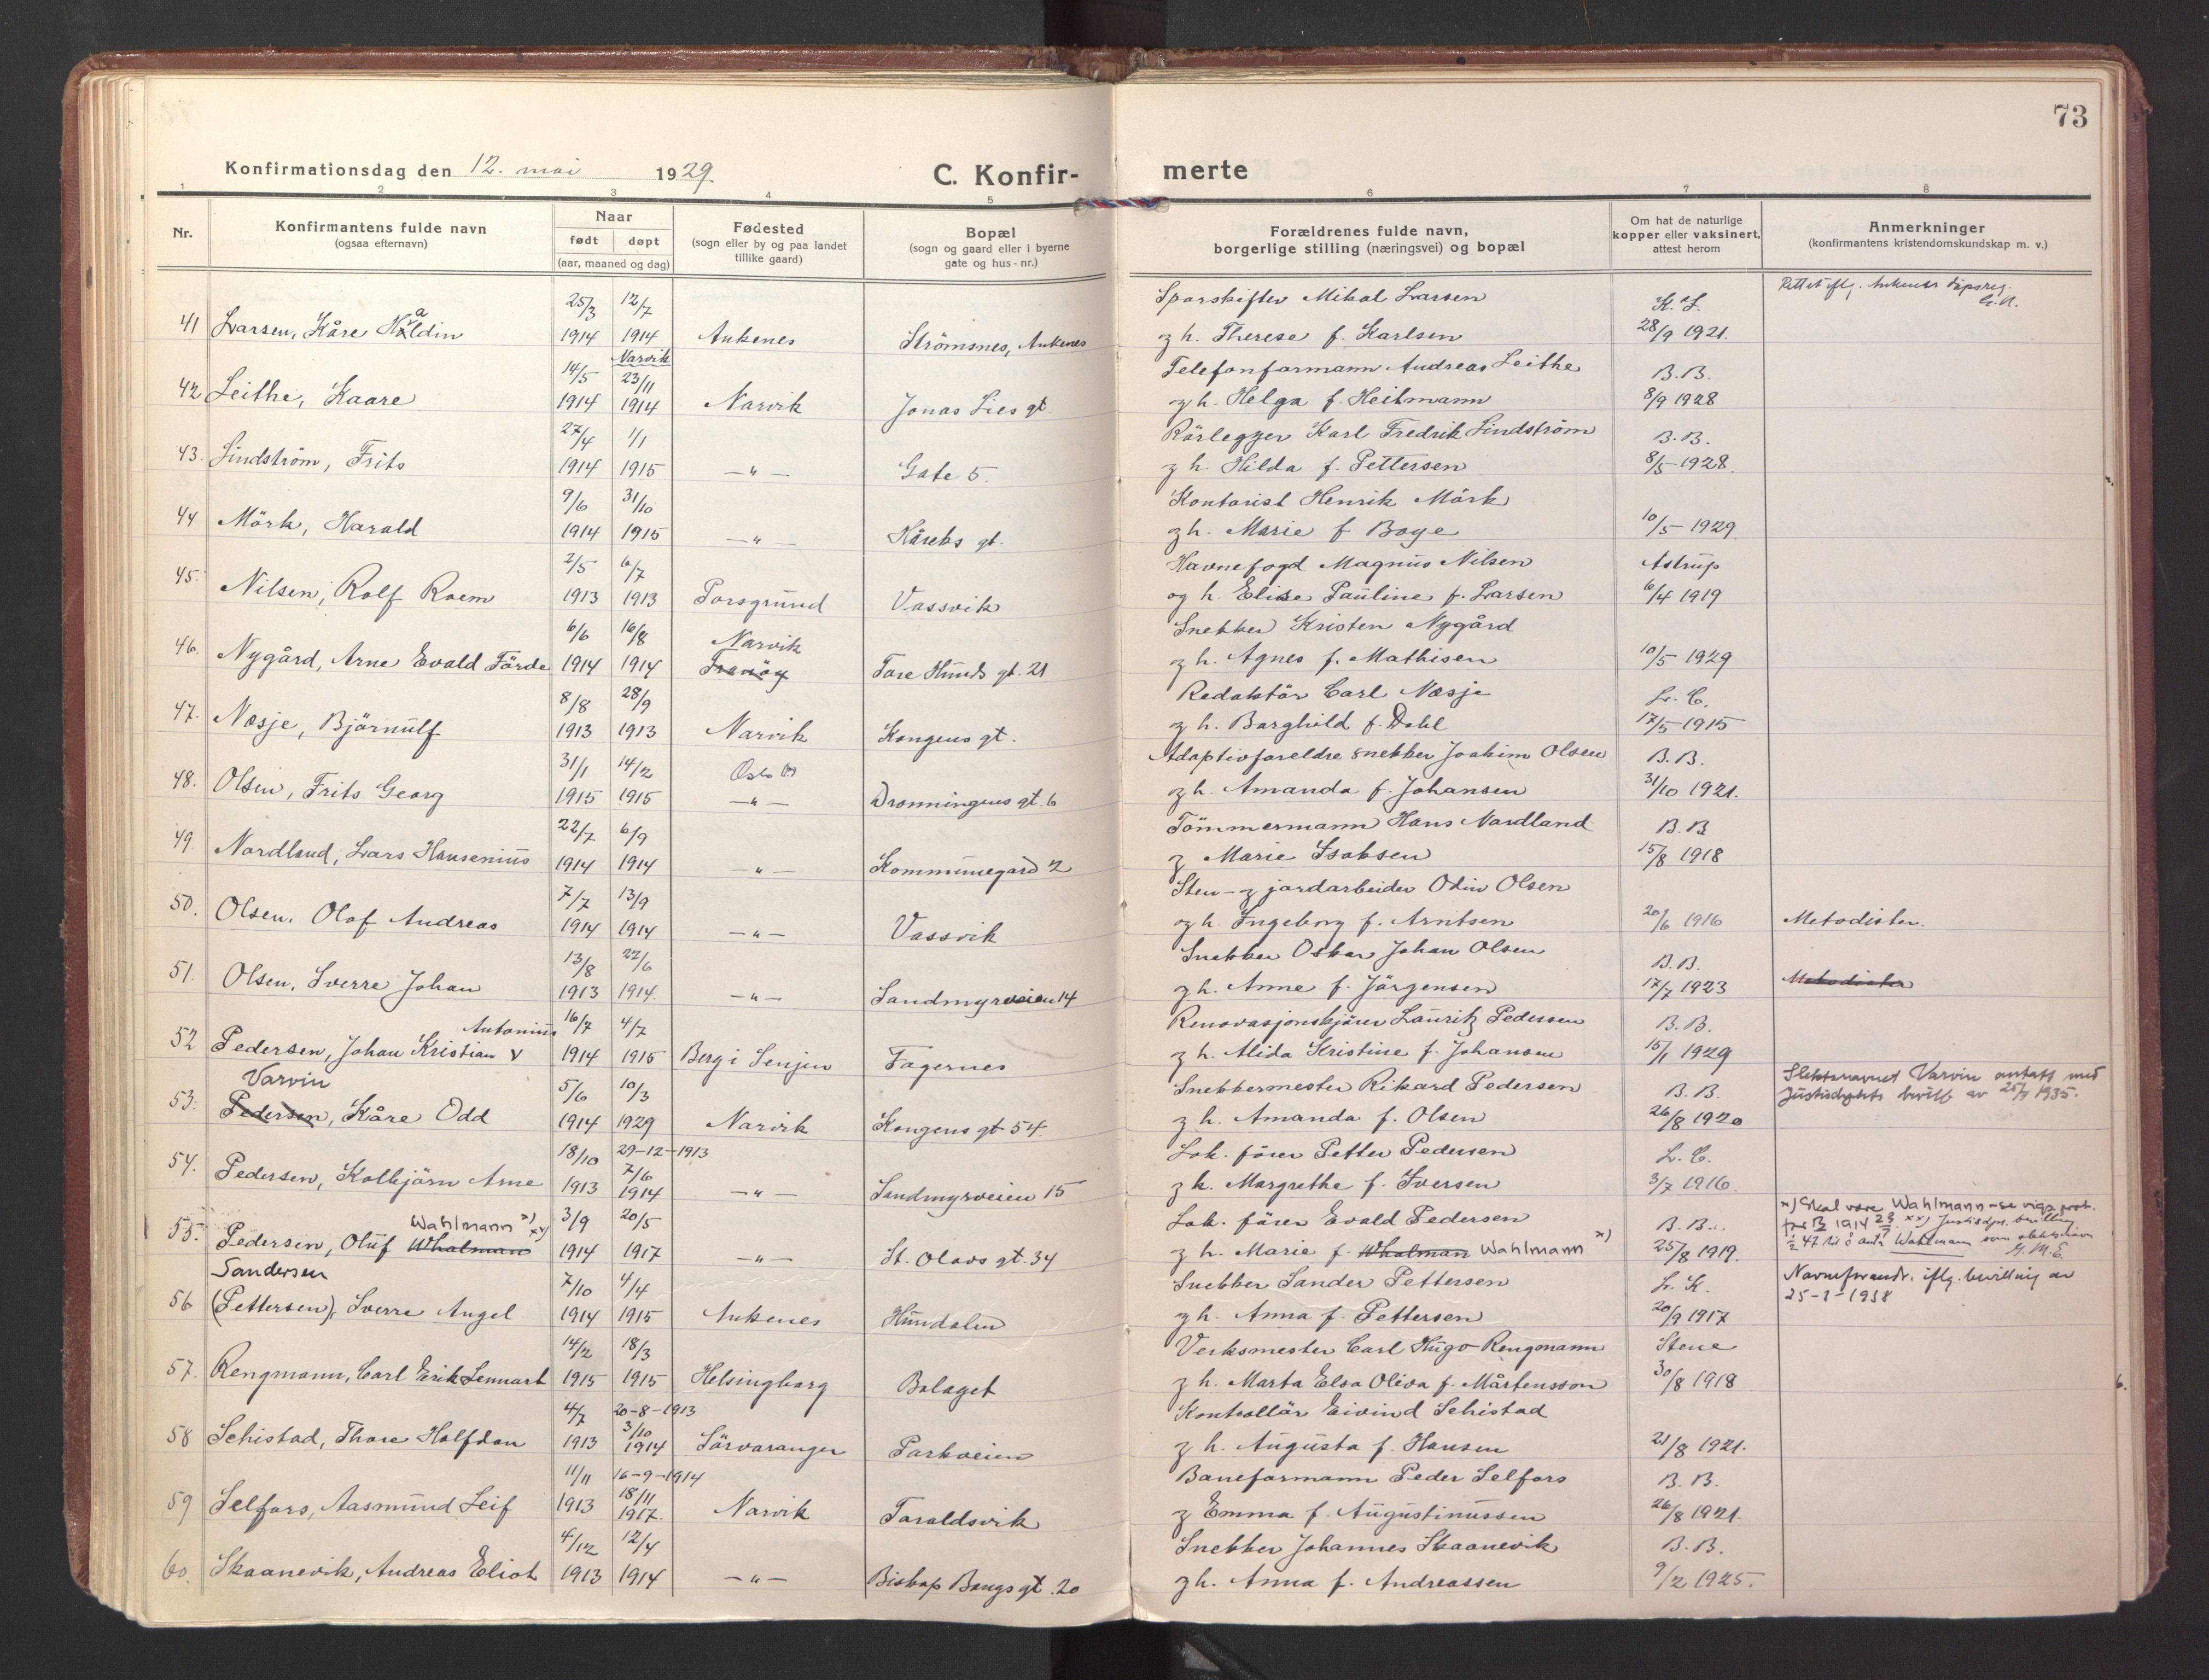 73
Konfirmationsdag den 12. mai 1929
C. Konfir-
merte
1 2 3 4 5 6 7 8
Nr.
Konfirmantens fulde navn
(ogsaa efternavn)
Naar
født døpt
(aar, maaned og dag)
Fødested
(sogn eller by og paa landet
tillike gaard)
Bopæl
(sogn og gaard eller i byerne
gate og hus-nr.)
Forældrenes fulde navn,
borgerlige stilling (næringsvei) og bopæl
Om hat de naturlige
kopper eller vaksinert,
attest herom
Anmerkninger
(konfirmantens kristendomskundskap m. v.)
25/3 12/7 Sporskifter Mikal Larsen K. L.
41 Larsen, Kåre Haldin 1914 1914 Ankenes Strömsnes, Ankenes g h. Therese f. Karlsen 28/9 1921.
Narvik
14/5 23/11 Telefonformann Andreas Leithe B.B.
42 Leithe, Kaare 1914 1914 Narvik Jonas Lies gt. g h. Helga f. Heitmann 8/9 1928
27/4 1/1 Rörlegger Karl Fredrik Lindström B.B.
43. Lindström, Frits 1914 1915 —"— Gate 5. g h. Hilda f. Pettersen 8/5 1928.
9/6 31/10 Kontorist Henrik Mörk
44 Mörk, Harald 1914 1915 —"— Håreks gt. g h. Marie f Boye 10/5 1929.
2/5 6/7 Havnefogd Magnus Nilsen Astrup
45. Nilsen, Rolf Roem 1913 1913 Porsgrund Vassvik og h. Elise Pauline f. Larsen 6/4 1919
6/6 16/8 Narvik Snekker Kristen Nygård
46. Nygård, Arne Evald Förde 1914 1914 Tranöy Tore Hunds gt. 21 g h. Agnes f. Mathisen 10/5 1929
8/8 28/9 Redaktör Carl Næsje L. C.
47. Næsje, Björnulf 1913 1913 Narvik Kongens gt. g h. Borghild f. Dahl 17/5 1915
31/1 14/2 Oslo Adoptivforeldre snekker Joakim Olsen B. B.
48. Olsen, Frits Georg 1915 1915 —"— Dronningens gt. 6 g h. Amanda f. Johansen 31/10 1921.
22/7 6/9 Tömmermann Hans Nordland B. B
49 Nordland, Lars Hansenius 1914 1914 —"— Kommunegård 2 g Marie Isaksen 15/8 1918
7/7 13/9 Sten- g jordarbeider Odin Olsen
50. Olsen, Olaf Andreas 1914 1914 —"— Vassvik og h. Ingeborg f. Arntsen 20/6 1916 Metodister.
13/8 22/6 Snekker Oskar Johan Olsen B. B.
51. Olsen, Sverre Johan 1913 1914. —"— Sandmyrveien 14 g h. Anne f. Jörgensen 17/7 1923 Metodister
Antonius 16/7 4/7 Renovasjonskjörer Lauritz Pedersen B. B.
52 Pedersen, Johan Kristian V 1914 1915 Berg i Senjen Fagernes g h. Alida Kristine f. Johansen 15/1 1929
Varvin 5/6 10/3 Snekkermester Rikard Pedersen B. B. Slektsnavnet Varvin antatt med
53. Pedersen, Kåre Odd 1914 1929 Narvik Kongens gt 54. g h. Amanda f. Olsen 26/8 1920 Justisdptets bevill av 25/7 1935.
18/10 29-12-1913 7/6 Lok. förer Petter Pedersen L. C.
54. Pedersen, Kolbjörn Arne 1913 1914 —"— Sandmyrveien 15 g h. Margrethe f. Iversen 3/7 1916.
Wahlmann x) xx) 3/9 20/5 Lok. förer Evald Pedersen x) B. B. x) Skal være Wahlmann - se
55. Pedersen, Oluf Whalman 1914 1917 —"— St. Olavs gt. 34 g h. Marie f. Whalman Wahlmann 25/8 1919. xx) Wahlmann som slektsnavn
Sandersen 7/10 4/4 Snekker Sander Pettersen L. K. Navneforandr. iflg. bevilling av
56 (Pettersen), Sverre Angel 1914 1915 Ankenes Hundalen g h. Anna f. Pettersen 20/9 1917 25-1-1938
14/2 18/3 Verksmester Carl Hugo Rengmann Stene
57. Rengmann, Carl Erik Lennart 1915 1915 Helsingborg Bolaget g h. Marta Elsa Oliva f. Mårtensson 30/8 1918
4/7 20-8-1913 3/10 Kontrollör Eivind Schistad
58 Schistad, Thore Halfdan 1913 1914 Sörvaranger Parkveien g h. Augusta f. Hansen 21/8 1921.
11/11 16-9-1914 18/11 Baneformann Peder Selfors B. B.
59 Selfors, Aasmund Leif 1913 1917. Narvik Taraldsvik g Emma f. Augustinussen 26/8 1921.
4/12 12/4 Snekker Johannes Skaanevik B. B.
60. Skaanevik, Andreas Eliot 1913 1914 —"— Biskop Bangs gt. 20 g h. Anna f. Andreassen 9/2 1925.